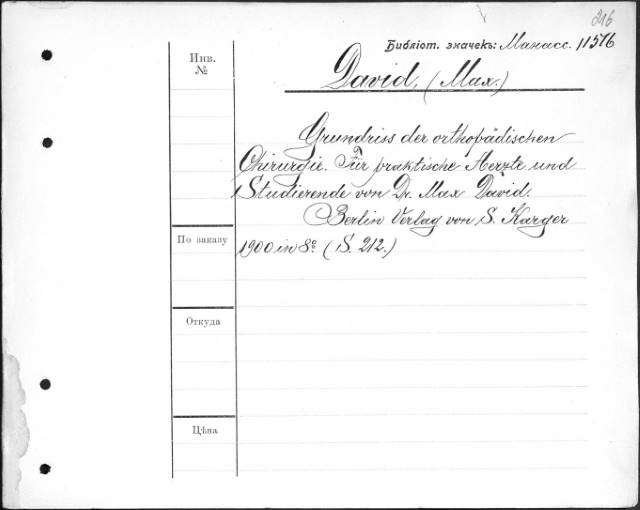 216
Библіот. значекъ: Манасс. 11576
Инв.
№
David, (Max.)
Grundriss der orthopädischen
Chirurgie. Für praktische Aerzte und
Studierende von Dr. Max David.
Berlin Verlag von S. Karger
1900 in 8º. (S. 212.)
По заказу
Откуда
Цѣна